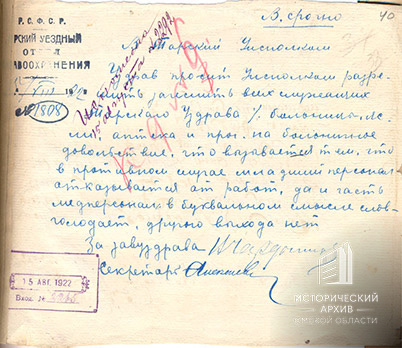 В. срочно
40
Р. С. Ф. С. Р.
РСКИЙ УЕЗДНЫЙ
ОТДЕЛ
АВООХРАНЕНИЯ
№ 1808
Тарский Исполком
просит Исполком разре-
шить зачислить всех служащих
Тарского Уздрава
аптека и проч. на больничное
довольствие, что вызывается тем, что
в противном случае младший персонал
отказывается от работ, да и часть
медперсонала в буквальном смысле слов-
голодает, другого выхода нет
За завуздрава
Секретарь Алексеев
15 АВГ. 1922
Вход. №
ИСТОРИЧЕСКИЙ
АРХИВ
ОМСКОЙ ОБЛАСТИ